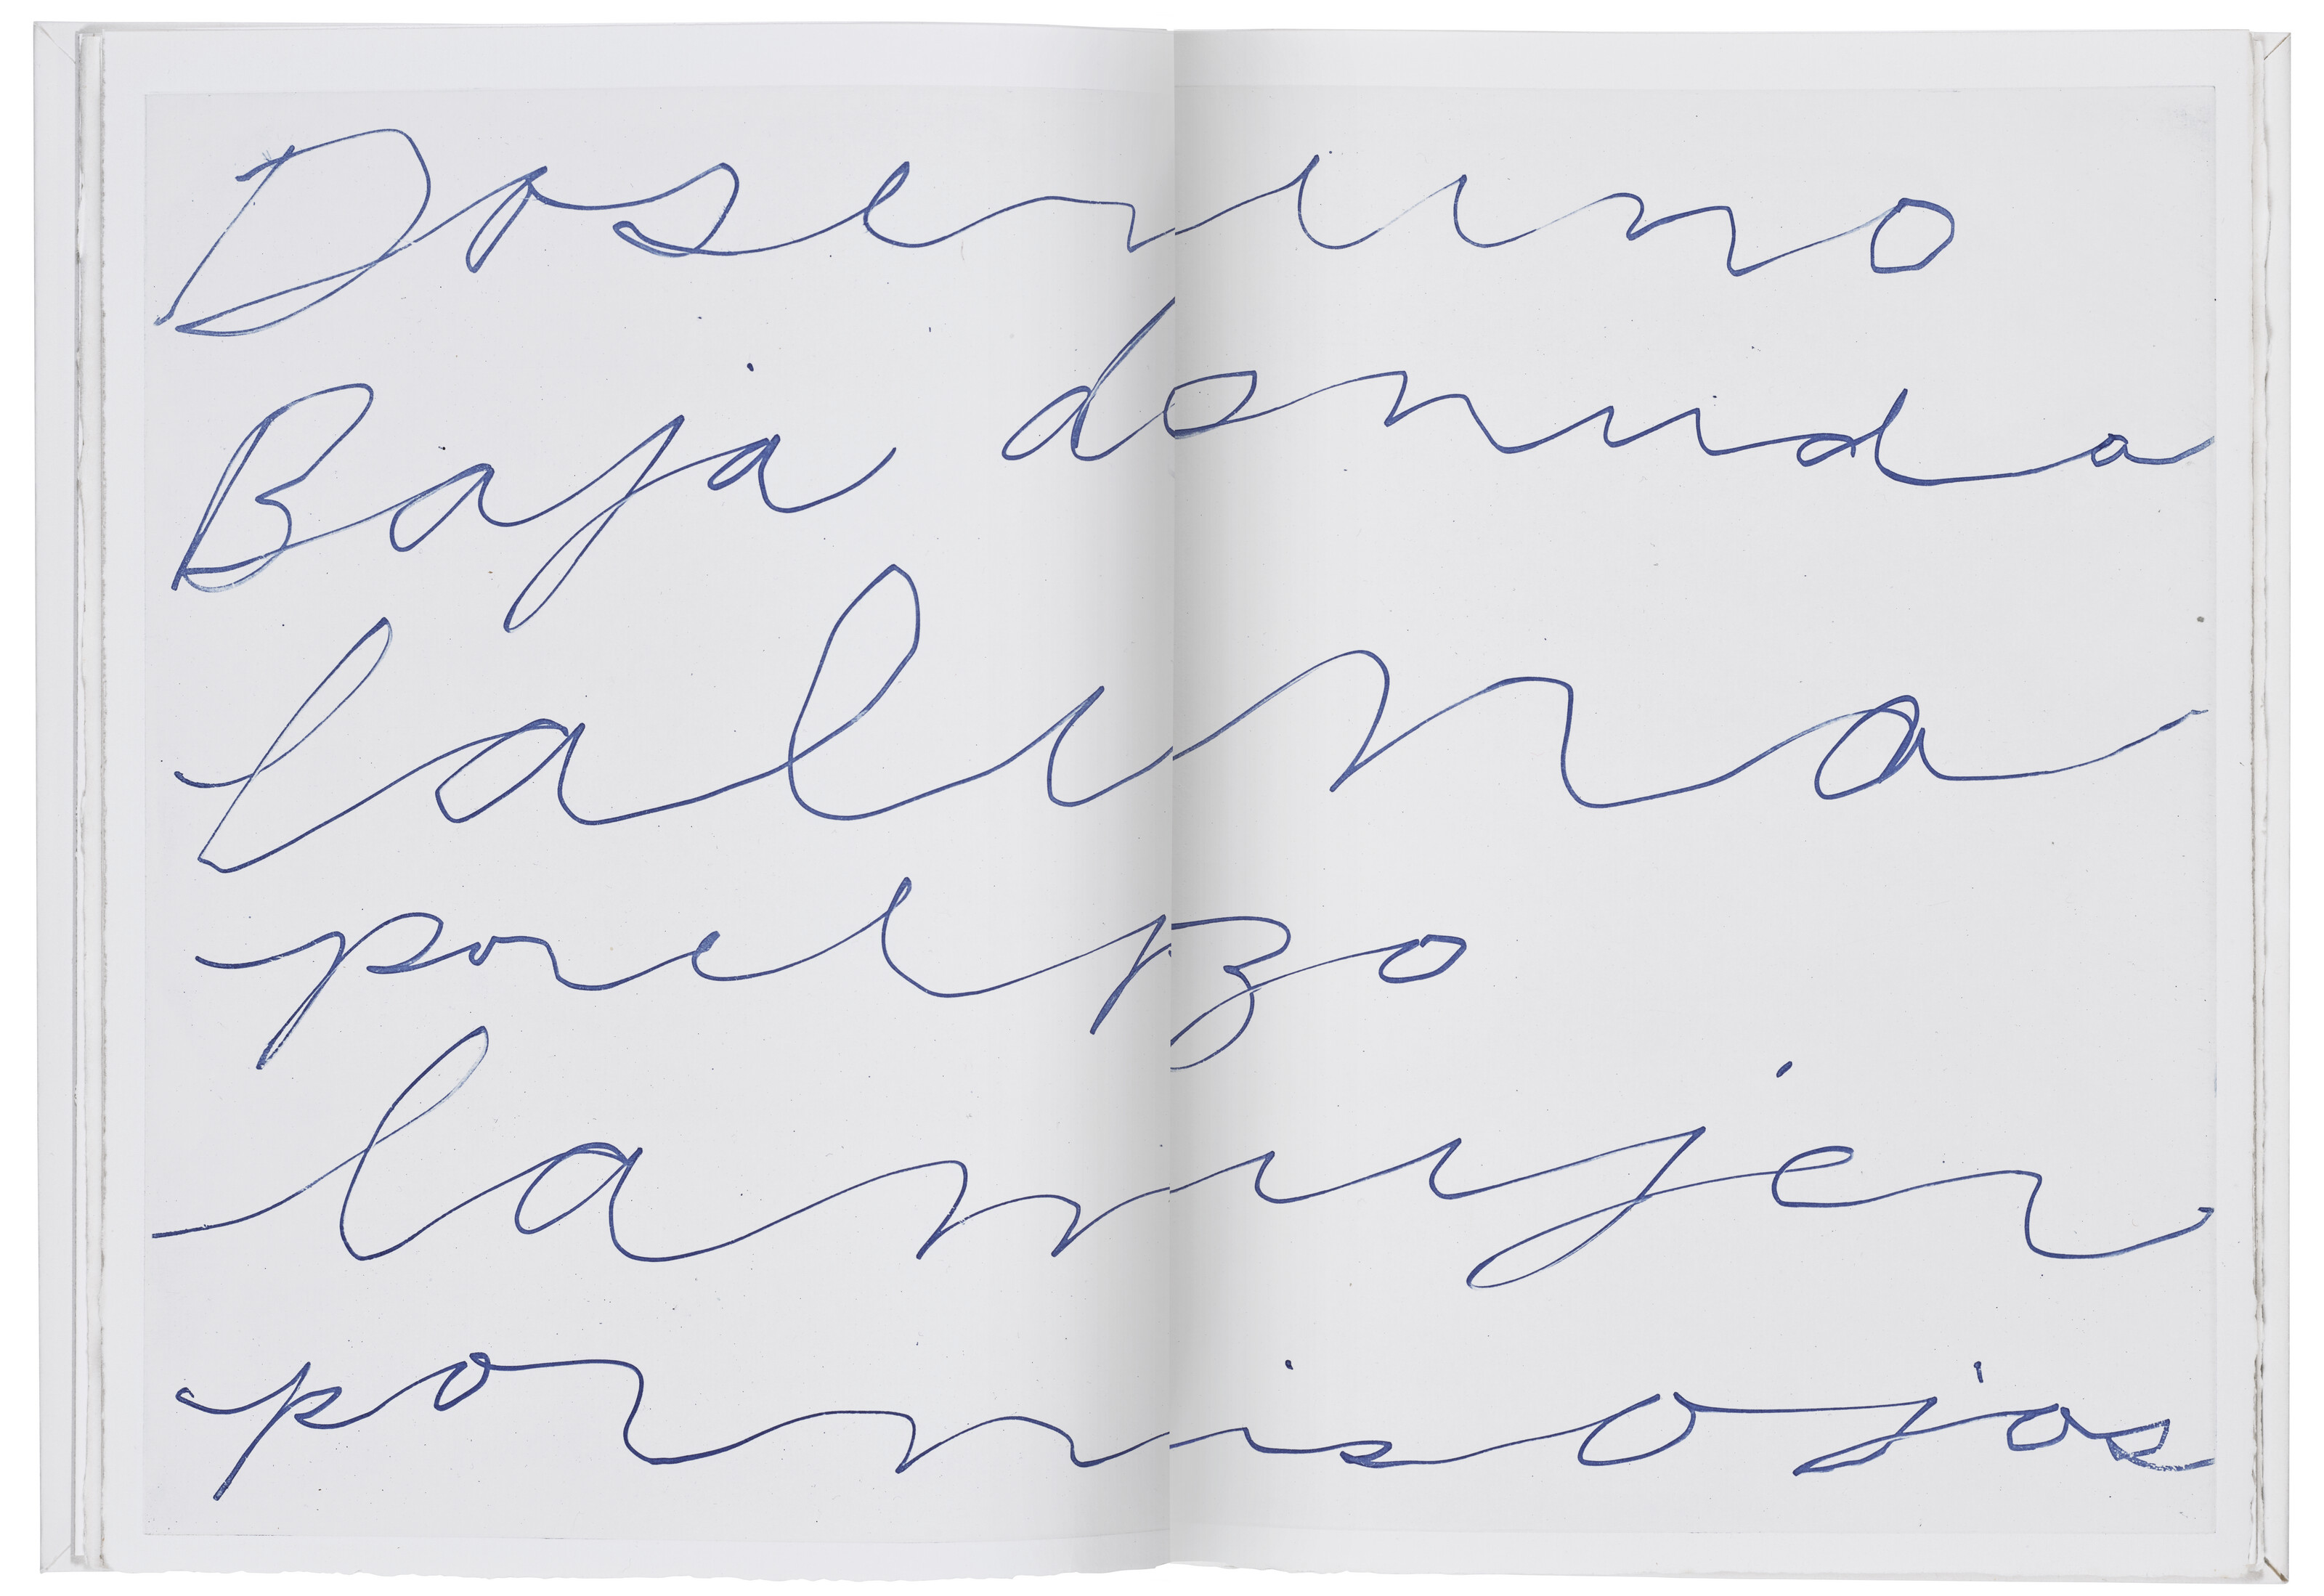 Dos en uno
Baja desnuda
la luna
por el pozo
la mujer
por mis ojos